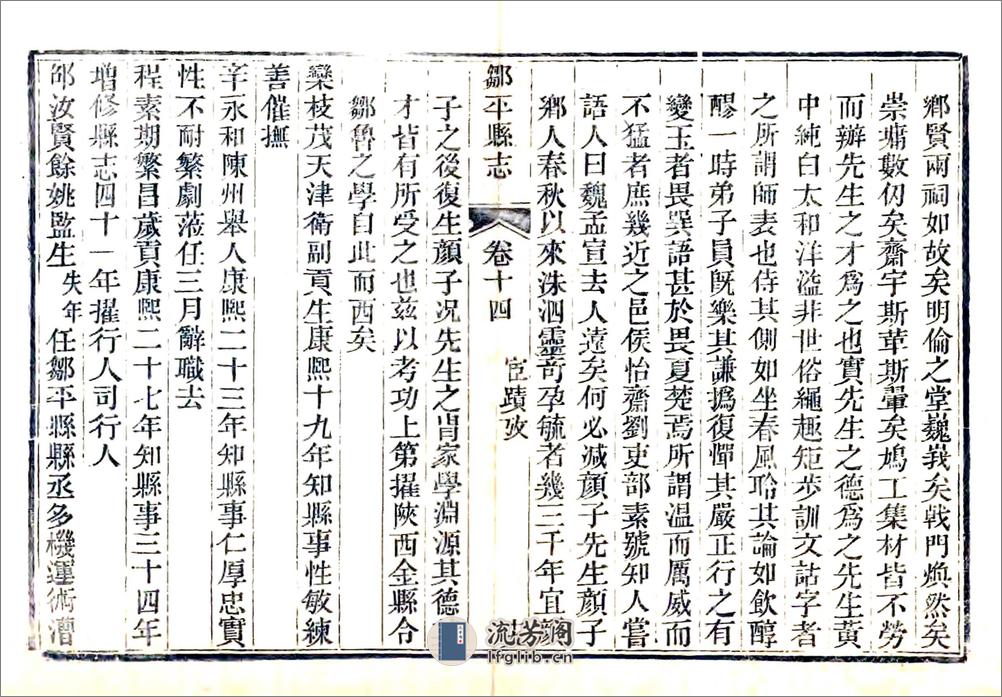 鄉賢兩祠如故矣明倫之堂巍峩矣戟門煥然矣
崇墉數仭矣齋宇斯革斯翬矣鳩工集材皆不勞
而辦先生之才爲之也實先生之德爲之先生黃
中純白太和洋溢非世俗繩趣矩步訓文詁字者
之所謂師表也侍其側如坐春風聆其論如飲醇
醪一時弟子員旣樂其謙撝復憚其嚴正行之有
變玉者畏巽語甚於畏夏楚焉所謂溫而厲威而
不猛者庶幾近之邑侯怡齋劉吏部素號知人嘗
語人曰魏孟宣去人遠矣何必減顏子先生顏子
鄉人春秋以來洙泗靈奇孕毓者幾三千年宜
鄒平縣志 卷十四 宦蹟攷
子之後復生顏子况先生之肯家學淵源其德
才皆有所受之也兹以考功上第擢陝西金縣令
鄒魯之學自此而西矣
欒枝茂天津衛副貢生康熙十九年知縣事性敏練
善催撫
辛永和陳州舉人康熙二十三年知縣事仁厚忠實
性不耐繁劇蒞任三月辭職去
程素期繁昌歲貢康熙二十七年知縣事三十四年
增修縣志四十一年擢行人司行人
邵汝賢餘姚監生失年任鄒平縣縣丞多機運術漕
流芳閣
lfglib.cn